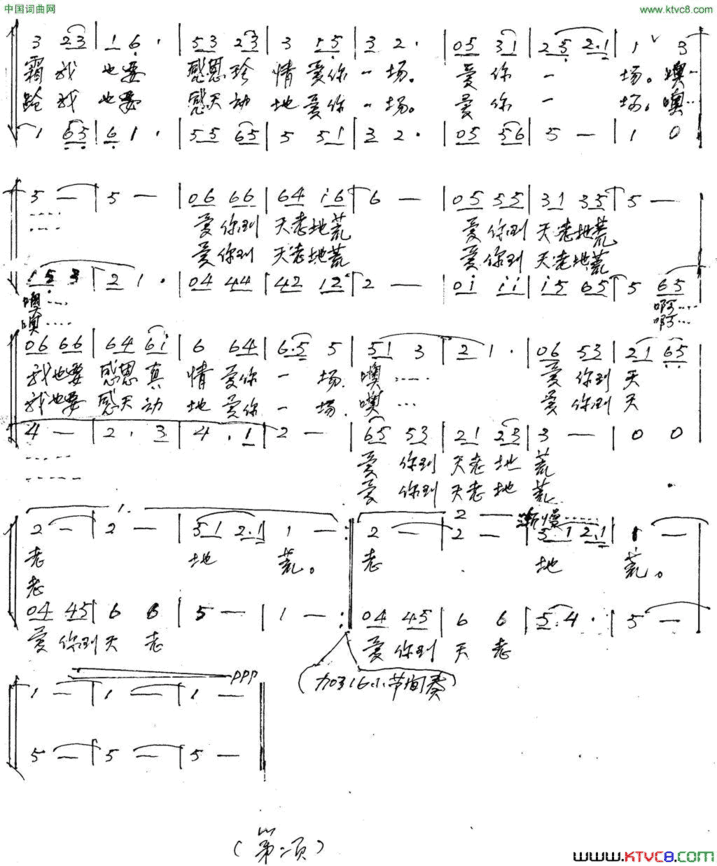 中国词曲网
www.ktvc8.com
3 23 | 1 6· | 53 23 | 3 15 | 3 2· | 05 31 | 25 2·1 | 1 3
霜我 也要 感恩珍 情爱你 一 场。 爱你 一 场。噢…
我 也要 感天动 地爱你 一 场。 爱你 一 场。噢…
1 65 | 61· | 55 65 | 5 51 | 3 2· | 05 56 | 5 — | 1 0
5 — | 5 — | 06 66 | 64 i6 | 6 — | 05 55 | 31 35 | 5 —
爱你到 天老地荒 爱你到 天老地荒
爱你到 天老地荒 爱你到 天老地荒
153 | 21· | 04 44 | 42 12 | 2 — | 0i ii | i5 65 | 5 65
噢…… 啊……
噢…… 啊……
06 66 | 64 6i | 6 64 | 6·5 5 | 51 3 | 21· | 06 53 | 21 65
我也要 感恩真 情 爱你 一 场. 噢…… 爱你到 天
我也要 感天动 地 爱你 一 场. 噢…… 爱你到 天
4 — | 2·3 | 4·1 | 2 — | 65 53 | 21 23 | 3 — | 0 0
爱 你到 天老 地 荒
爱 你到 天老 地 荒
1.
2 — 渐慢……
2 — | 2 — | 51 2·1 | 1 — :‖ 2 — | 2 — | 51 2·1 | 1 —
老 地 荒。 老 地 荒。
老
04 45 | 6 6 | 5 — | 1 — :‖ 04 45 | 6 6 | 5·4· | 5 —
爱你到 天 老 爱你到 天 老
ppp
(加316小节间奏)
1 — | 1 — | 1 —
5 — | 5 — | 5 —
(第二页)
www.KTVC8.com